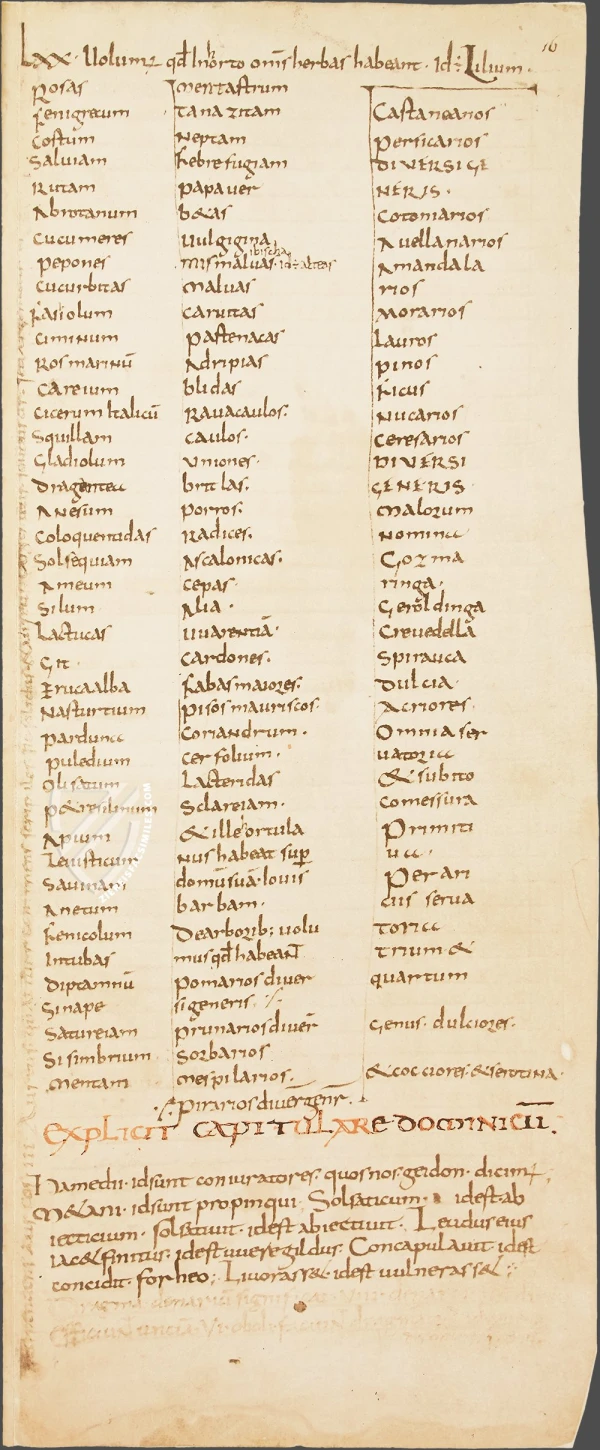 16
Lxx · Uolumꝰ qđ In horto omīs herbas habeant · Id ÷ Lilium ·
Rosas
fenigrecum
Costum
Saluiam
Rutam
Abrotanum
Cucumeres
pepones
cucurbitas
fasiolum
ciminum
Ros marinū
careium
cicerum Italicū
Squillam
Gladiolum
Dragentea
Anesum
Coloquentidas
Solsequiam
Ameum
Silum
Lactucas
Git
Eruca alba
Nasturtium
parduna
puledium
Olisatum
p&resilinum
Apium
Leuisticum
Sauinam
Anetum
fenicolum
Intubas
Diptamnū
Sinape
Satureiam
Sisimbrium
mentam
mentastrum
tanazitam
Neptam
febrefugiam
papauer
b&as
uulgigina
ibischa
mismaluas · id ÷ alteas
maluas
caruitas
pastenacas
Adripias
blidas
Rauacaulos ·
caulos ·
uniones ·
britlas ·
porros ·
Radices ·
Ascalonicas ·
cepas ·
Alia ·
uuarentiā ·
cardones ·
fabas maiores ·
pisos mauriscos ·
Coriandrum ·
cerfolium ·
Lacteridas
Sclareiam ·
& ille ortula
nus habeat sup̄
domū suā · Iouis
barbam ·
De arborib; uolu
mus qđ habeant
pomarios diuer
si generis ·/·
prunarios diuer̄
Sorbarios
mespilarios ·
·/· pirarios diuer̄ gener̄ ·
Castanearios
persicarios
DIVERSI GE
NERIS ·
Cotoniarios
Auellanarios
Amandala
rios
Morarios
Lauros
pinos
ficus
Nucarios
Ceresarios
DIVERSI
GENERIS ·
malorum
nomina
Gozma
ringa ·
Geroldinga
Creuedella
Spirauca
Dulcia ·
Acriores ·
Omnia ser
uatoria
& subito
comessura
Primiti
ua ·
Perari
cus serua
toria
trium &
quartum
Genus · dulciores ·
& cocciores · & serotina ·
EXPLICIT CAPITULARE DOMINICŪ.
Hamedii · id sunt coniuratores · quos nos geidon · dicim̄ ,
M&ani · id sunt propinqui · Solsaticum · id est · ab
iecticium · solsatiuit · id est abiectiuit · Leudus eius
iac& finitus · id est uueregildus · Concapulauit · id est
concidit · forheo ; Liuorass& · id est uulnerass& ·